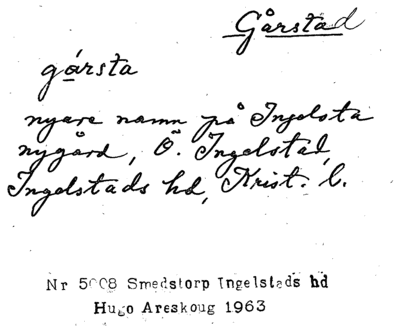 Gårstad
gársta
nyare namn på Ingelsta
nygård, Ö. Ingelstad,
Ingelstads hd, Krist. l.
Nr 5008 Smedstorp Ingelstads hd
Hugo Areskoug 1963